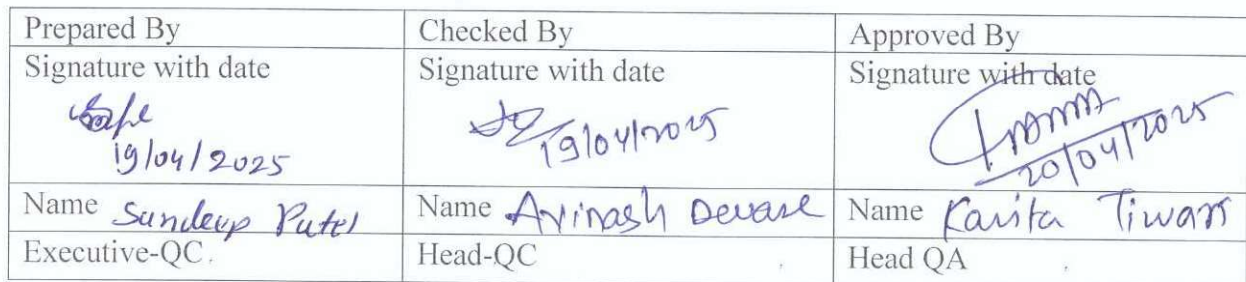 Prepared By Checked By Approved By
Signature with date Signature with date Signature with date
19/04/2025 19/04/2025 20/04/2025
Name Sundeep Patel Name Avinash Devare Name Kavita Tiwari
Executive-QC Head-QC Head QA